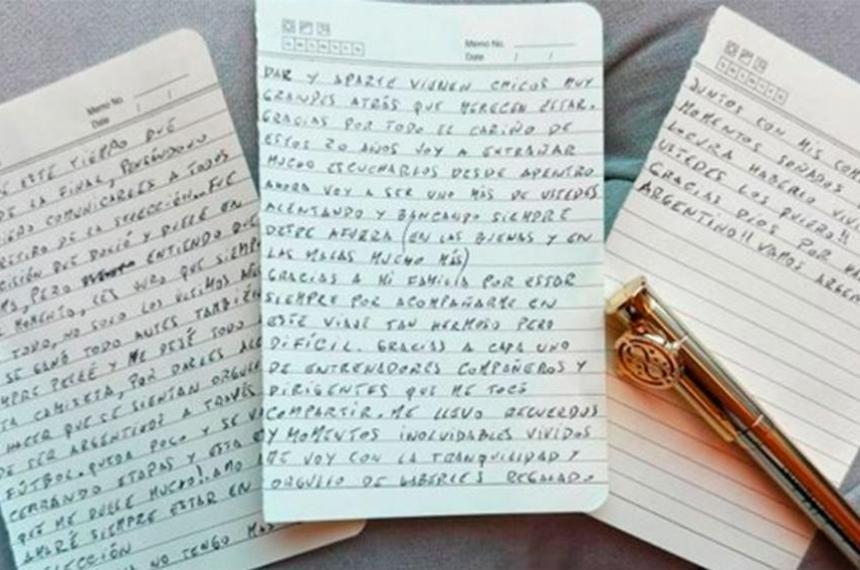 Memo No.
Date / /
E ESTE TIEMPO QUE
DE LA FINAL, PENSÁNDOLO
COMUNICARLES A TODOS
RETIRO DE LA SELECCIÓN. FUE
QUE DOLIÓ Y DUELE EN
PERO ENTIENDO QUE
MOMENTO, LES JURO QUE SIEMPRE
TODO, NO SOLO LOS ÚLTIMOS
SE GANÓ TODO ANTES TAMBIÉN
PELEÉ Y ME DEJÉ TODO
TA CAMISETA, POR DARLES
HACER QUE SE SIENTAN
DE SER ARGENTINOS A TRAVÉS
FÚTBOL. QUEDA POCO Y SE
CERRANDO ETAPAS Y ESTA
QUE ME DUELE MUCHO! AMO
AMARÉ SIEMPRE ESTAR EN
SELECCIÓN
NO TENGO
Memo No.
Date / /
DAR Y APARTE VIENEN CHICOS MUY
GRANDES ATRÁS QUE MERECEN ESTAR.
GRACIAS POR TODO EL CARIÑO DE
ESTOS 20 AÑOS VOY A EXTRAÑAR
MUCHO ESCUCHARLOS DESDE ADENTRO
AHORA VOY A SER UNO MÁS DE USTEDES
ALENTANDO Y BANCANDO SIEMPRE
DESDE AFUERA (EN LAS BUENAS Y EN
LAS MALAS MUCHO MÁS)
GRACIAS A MI FAMILIA POR ESTAR
SIEMPRE POR ACOMPAÑARME EN
ESTE VIAJE TAN HERMOSO PERO
DIFÍCIL. GRACIAS A CADA UNO
DE ENTRENADORES COMPAÑEROS Y
DIRIGENTES QUE ME TOCÓ
COMPARTIR. ME LLEVO RECUERDOS
Y MOMENTOS INOLVIDABLES VIVIDOS
ME VOY CON LA TRANQUILIDAD Y
ORGULLO DE HABERLES REGALADO
JUNTOS CON MIS COM
MOMENTOS SOÑADOS
LOCURA HABERLO VIV
USTEDES LOS QUIERO!!
GRACIAS DIOS POR HA
ARGENTINO!! VAMOS ARGEN